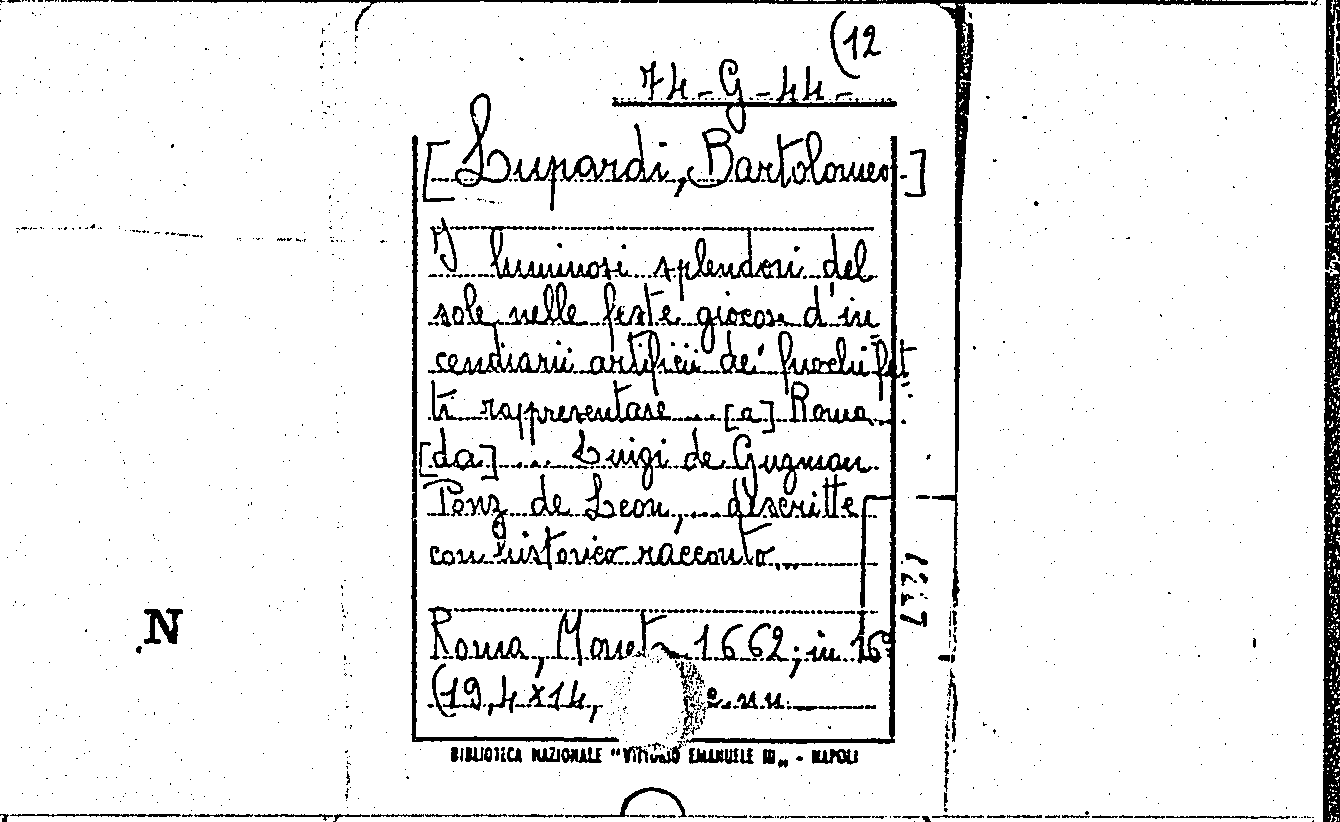 (12
74-G-44-
[Lupardi, Bartolomeo.]
I luminosi splendori del
sole nelle feste giocose d'in
cendiarii artificii de' fuochi fat
ti rappresentare ... [a] Roma...
[da] ... Luigi de Guzman
Ponz de Leon, ... descritte
con historico racconto...
N
Roma, Monet 1662; in 16º
(19,4x14,
BIBLIOTECA NAZIONALE "VITTORIO EMANUELE III„ - NAPOLI